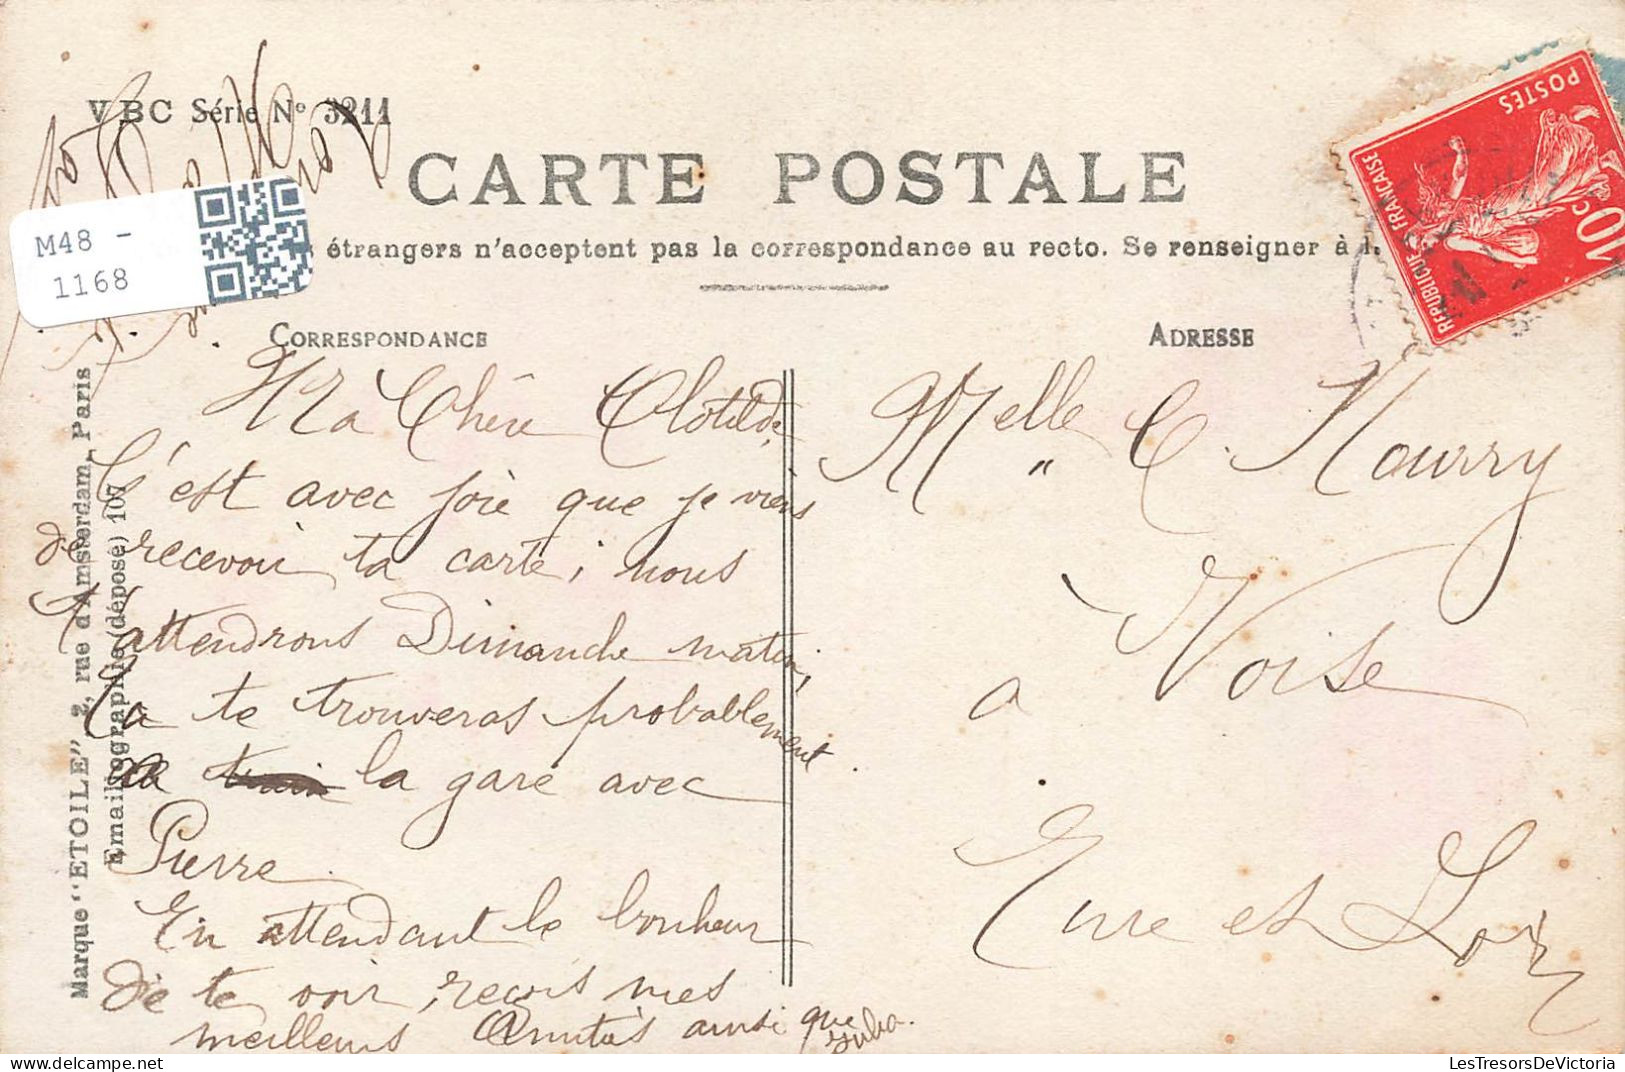 VBC Série N° 3211
CARTE POSTALE
étrangers n'acceptent pas la correspondance au recto. Se renseigner à l
M48 -
1168
POSTES
10c
RÉPUBLIQUE FRANÇAISE
CORRESPONDANCE
ADRESSE
Ma Chère Clotilde,
C'est avec joie que je viens
de recevoir ta carte, nous
t'attendrons Dimanche matin,
te trouveras probablement
la gare avec
Pierre.
En attendant le bonheur
de te voir, reçois mes
meilleurs Amitiés ainsi que
Melle C. Nourry
a Voise
Eure et Loir
Marque "ETOILE" 2, rue d'Amsterdam, Paris
Emaillographie (déposé) 107
LesTresorsDeVictoria